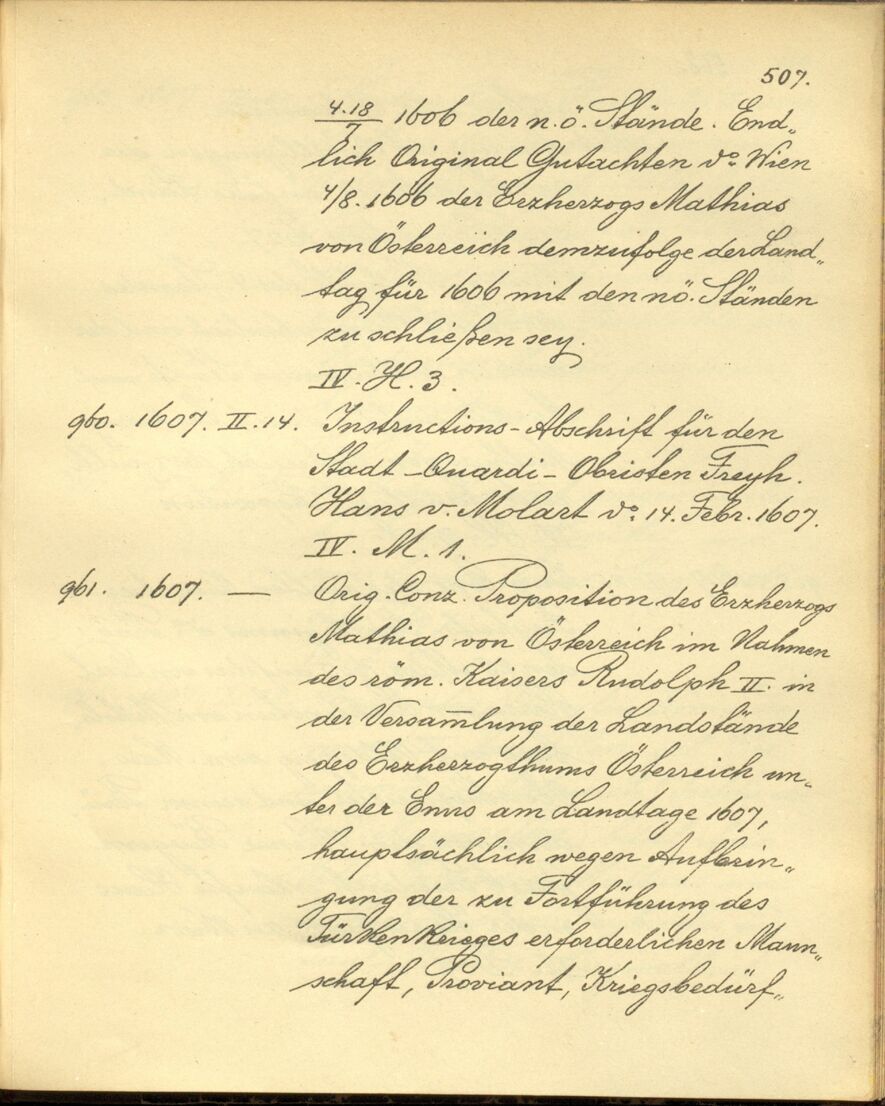 507.
4.18/7 1606 der n.ö. Stände. End„
lich Original Gutachten do. Wien
4/8. 1606 der Erzherzogs Mathias
von Österreich demzufolge der Land„
tag für 1606 mit den nö. Ständen
zu schließen sey.
IV. H. 3.
960. 1607. II. 14. Instructions-Abschrift für den
Stadt-Quardi-Obristen Freyh.
Hans v. Molart do. 14. Febr. 1607.
IV. M. 1.
961. 1607. — Orig. Conz. Proposition des Erzherzogs
Mathias von Österreich im Nahmen
des röm. Kaisers Rudolph II. in
der Versam̅lung der Landstände
des Erzherzogthums Österreich un„
ter der Enns am Landtage 1607,
hauptsächlich wegen Aufbrin„
gung der zu Fortführung des
Türkenkrieges erforderlichen Mann„
schaft, Proviant, Kriegsbedürf„